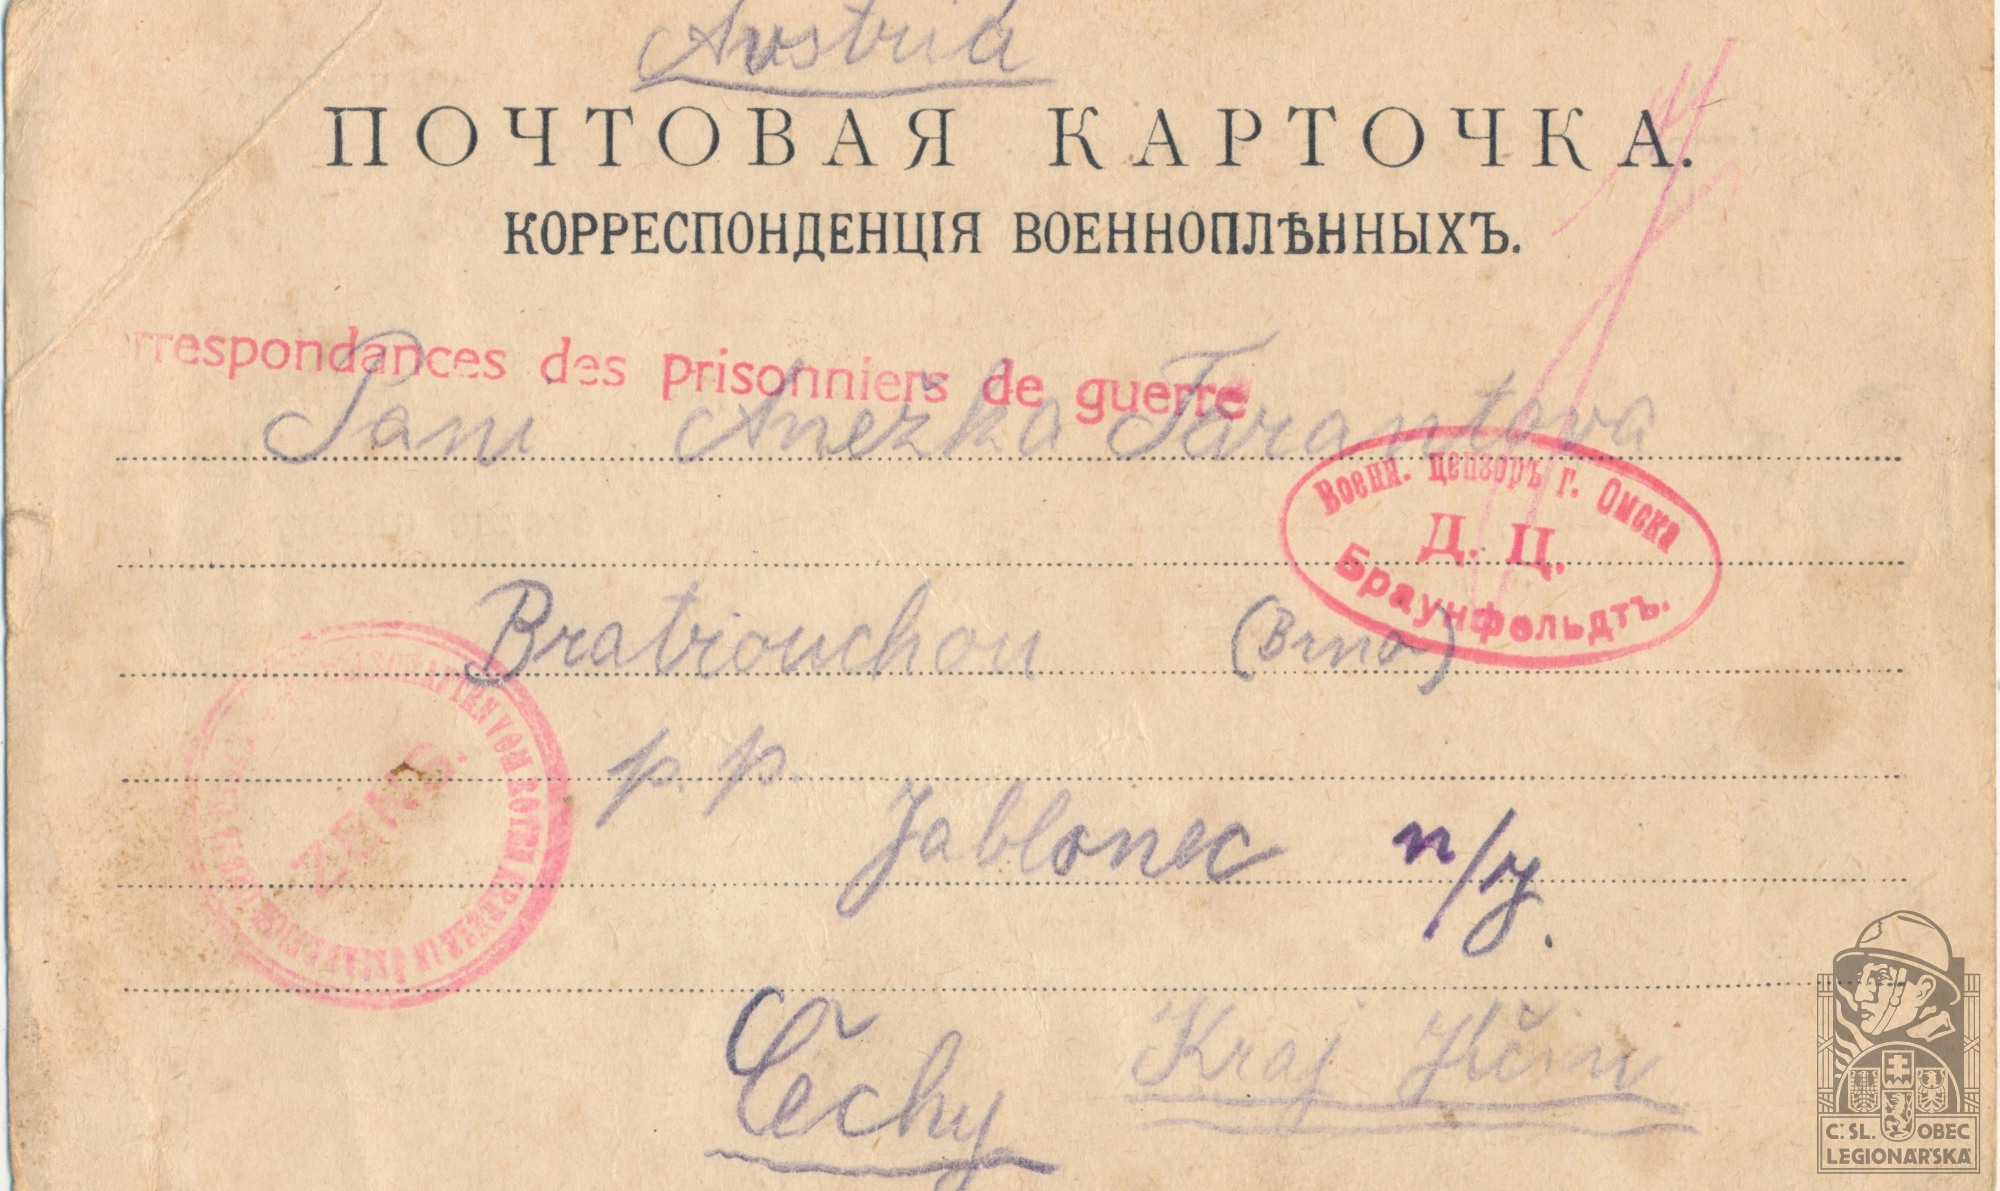 Avstria
ПОЧТОВАЯ КАРТОЧКА.
КОРРЕСПОНДЕНЦІЯ ВОЕННОПЛѢННЫХЪ.
rrespondances des prisonniers de guerre
Pani Anežka Farantova
Военн. цензоръ г. Омска
Д. Ц.
Браунфельдтъ.
Bratrouchou (Brno)
ZENS.
p. p.
Jablonec n/J.
Čechy Kraj Jičín
Č.SL. OBEC
LEGIONÁŘSKÁ